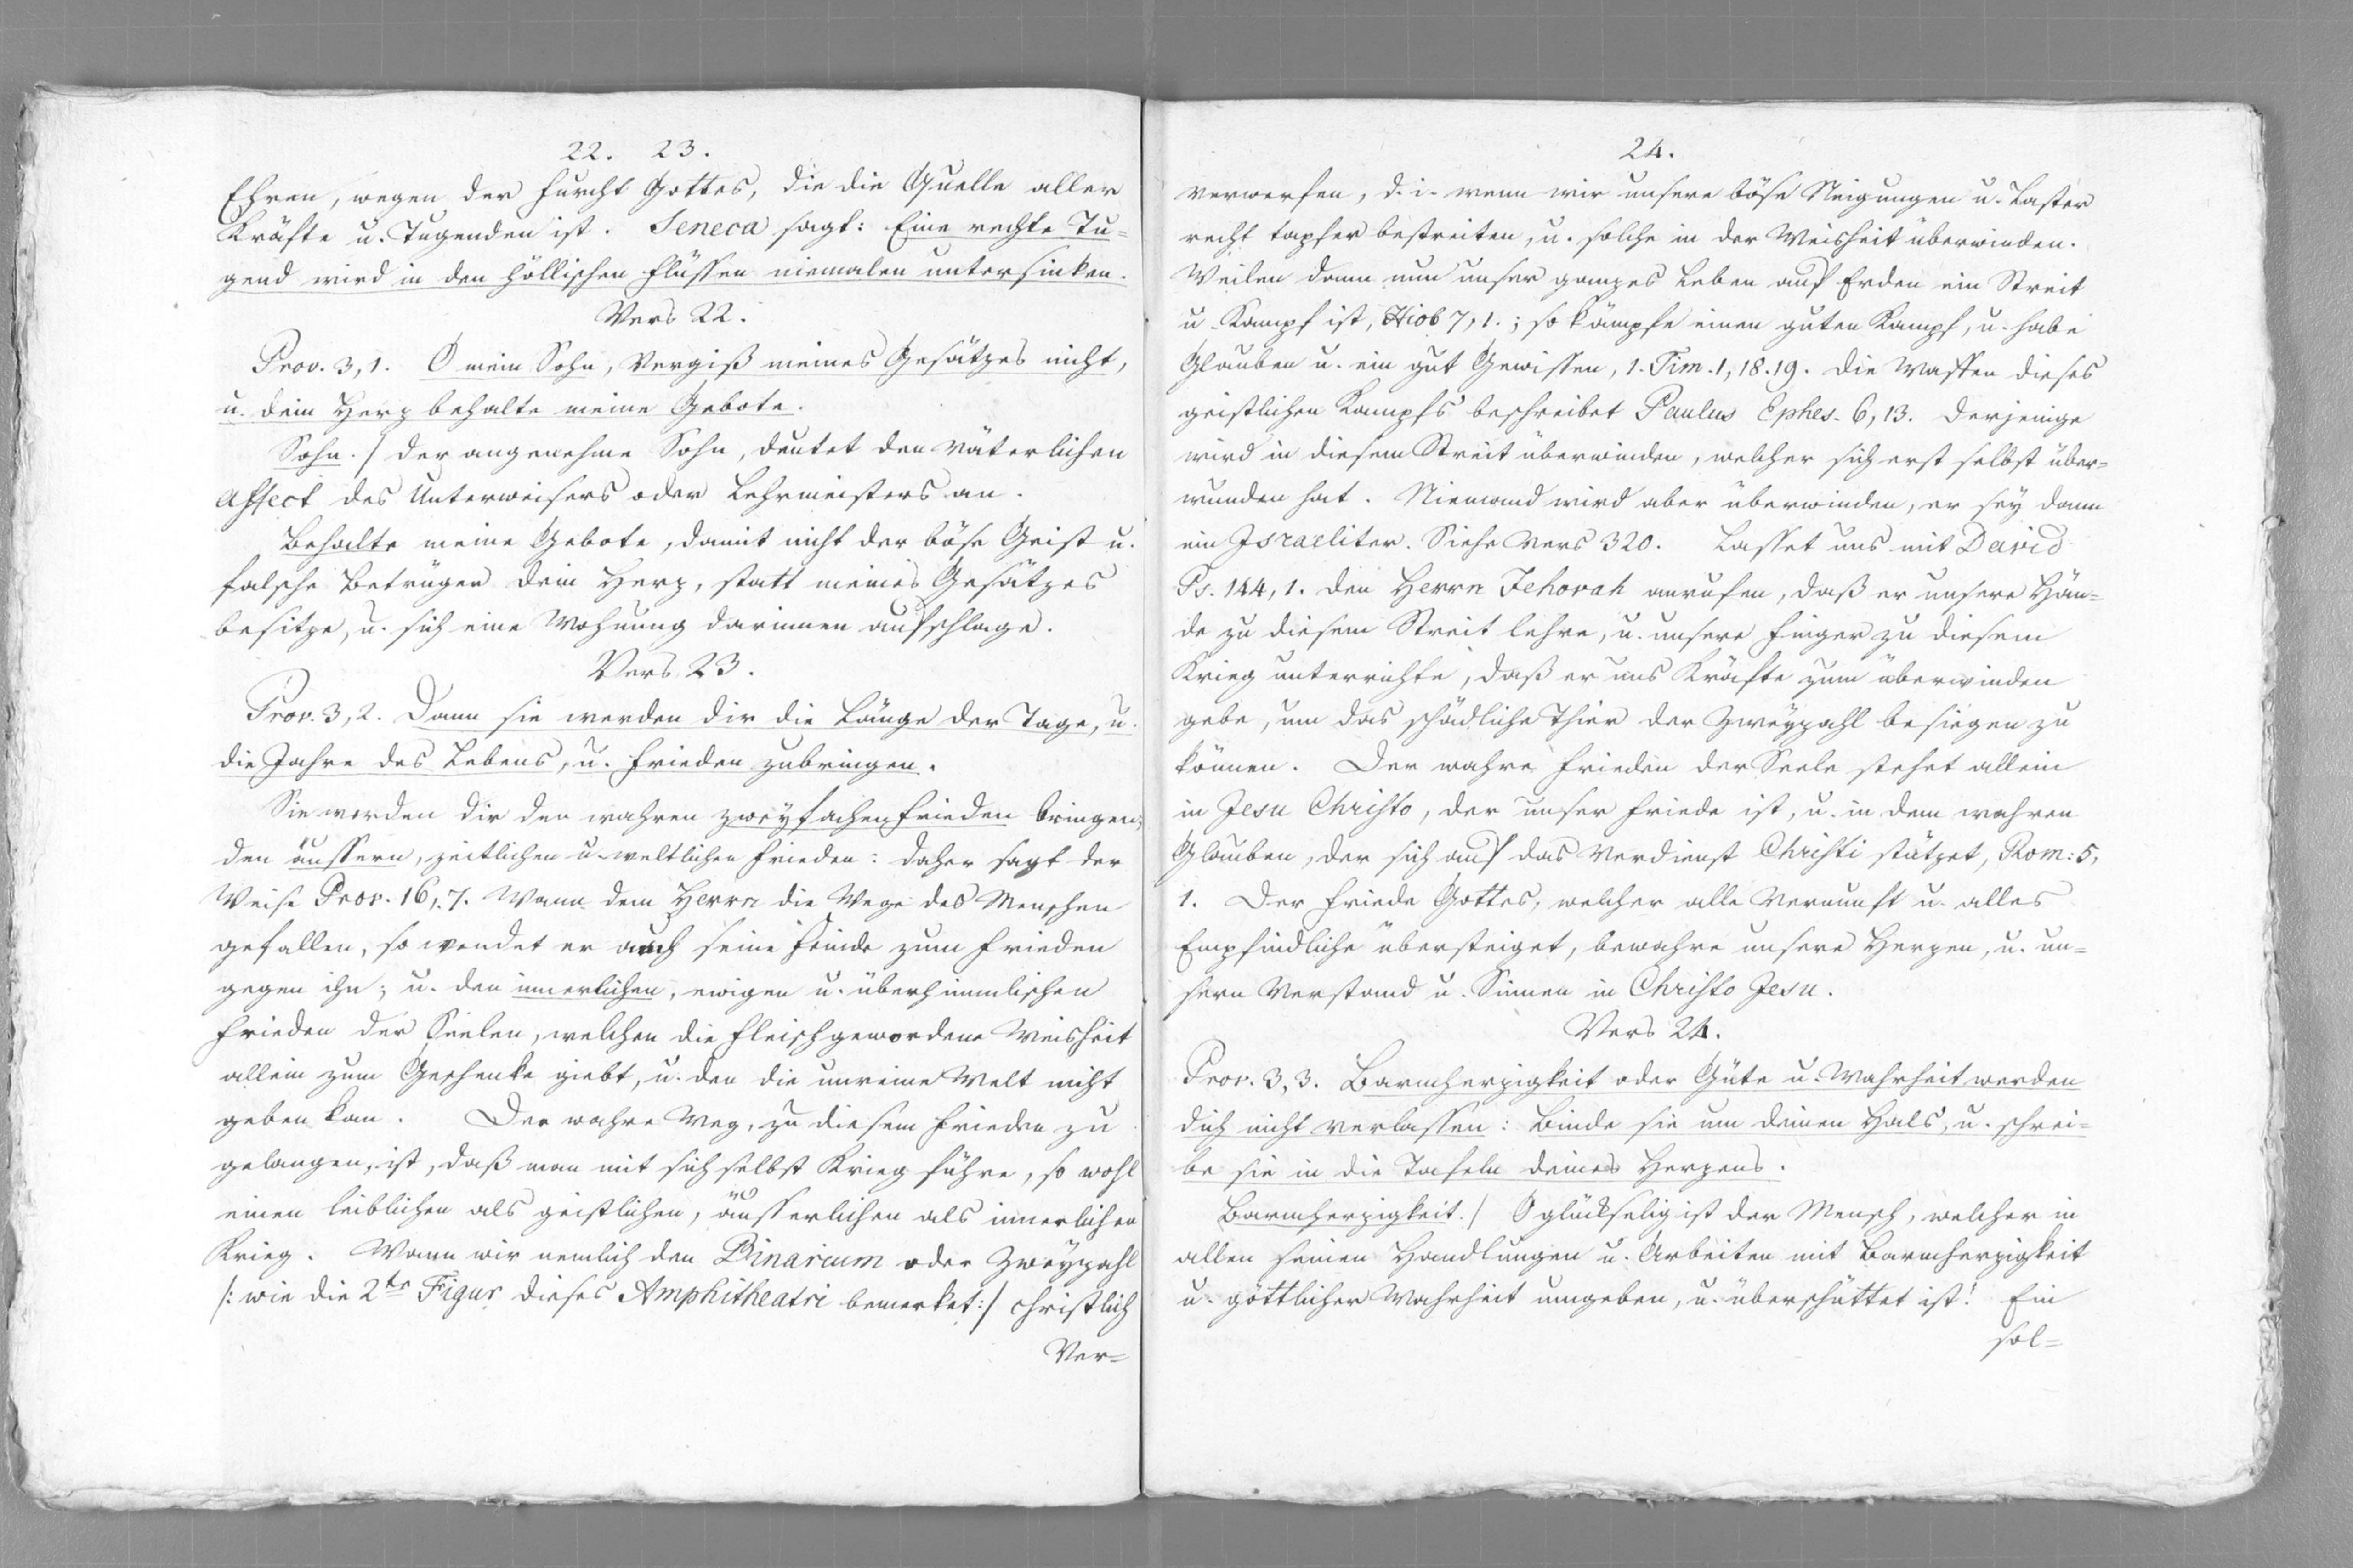 22. 23.
Ehren, wegen der Furcht Gottes, die die Quelle aller
Kräfte u. Tugenden ist. Seneca sagt: Eine rechte Tu=
gend wird in den höllischen Flüssen niemalen untersinken.
Vers 22.
Prov. 3, 1. O mein Sohn, vergiß meines Gesätzes nicht,
u. dein Herz behalte meine Gebote.
Sohn. / der angenehme Sohn, deutet den väterlichen
Affect des Unterweisers oder Lehrmeisters an.
Behalte meine Gebote, damit nicht der böse Geist u.
falsche Betrüger dein Herz, statt meines Gesätzes
besitze, u. sich eine Wohnung darinnen aufschlage.
Vers 23.
Prov. 3, 2. Dann sie werden dir die Länge der Tage, u.
die Jahre des Lebens, u. Frieden zubringen.
Sie werden dir den wahren zweyfachen Frieden bringen,
den äussern, zeitlichen u. weltlichen Frieden: daher sagt der
Weise Prov. 16, 7. Wann dem Herrn die Wege des Menschen
gefallen, so wendet er auch seine Feinde zum Frieden
gegen ihn; u. den innerlichen, ewigen u. überhimmlischen
Frieden der Seelen, welchen die Fleischgewordene Weisheit
allein zum Geschenke giebt, u. den die unreine Welt nicht
geben kan. Der wahre Weg, zu diesem Frieden zu
gelangen, ist, daß man mit sich selbst Krieg führe, so wohl
einen leiblichen als geistlichen, äusserlichen als innerlichen
Krieg. Wann wir nemlich den Binarium oder Zweyzahl
/: wie die 2te Figur dieses Amphitheatri bemerket :/ christlich
Ver=
24.
verwerfen, d. i. wenn wir unsere böse Neigungen u. Laster
recht tapfer bestreiten, u. solche in der Weisheit überwinden.
Weilen dann nun unser ganzes Leben auf Erden ein Streit
u. Kampf ist, Hiob 7, 1.; so kämpfe einen guten Kampf, u. habe
Glauben u. ein gut Gewissen, 1. Tim. 1, 18. 19. Die Waffen dieses
geistlichen Kampfs beschreibet Paulus Ephes. 6, 13. Derjenige
wird in diesem Streit überwinden, welcher sich erst selbst über=
wunden hat. Niemand wird aber überwinden, er sey dann
ein Israeliter. Siehe Vers 320. Lasset uns mit David
Ps. 144, 1. den Herrn Jehovah anrufen, daß er unsere Hän=
de zu diesem Streit lehre, u. unsere Finger zu diesem
Krieg unterrichte, daß er uns Kräfte zum überwinden
gebe, um das schädliche Thier der Zweyzahl besiegen zu
können. Der wahre Frieden der Seele stehet allein
in Jesu Christo, der unser Friede ist, u. in dem wahren
Glauben, der sich auf das Verdienst Christi stützet, Rom: 5,
1. Der Friede Gottes, welcher alle Vernunft u. alles
Empfindliche übersteiget, bewahre unsere Herzen, u. un=
sern Verstand u. Sinnen in Christo Jesu.
Vers 24.
Prov. 3, 3. Barmherzigkeit oder Güte u. Wahrheit werden
dich nicht verlassen: Binde sie um deinen Hals, u. schrei=
be sie in die Tafeln deines Herzens.
Barmherzigkeit. / O glückselig ist der Mensch, welcher in
allen seinen Handlungen u. Arbeiten mit Barmherzigkeit
u. göttlicher Wahrheit umgeben, u. überschüttet ist! Ein
sol=